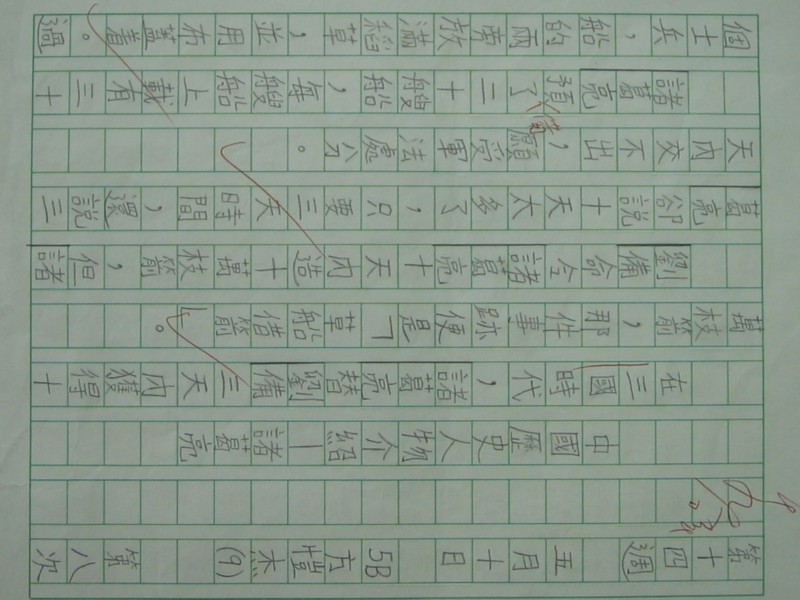 第十四週 五月十日 5B 方愷杰 (9) 第八次
中國歷史人物介紹—諸葛亮
在三國時代，諸葛亮替劉備三天內獲得十
萬枝箭，那件事跡便是「草船借箭」。
劉備命令諸葛亮十天內造十萬枝箭，但諸
葛亮卻說十天太多了，只要三天時間，還說三
天內交不出，願受軍法處分。
諸葛亮預備了二十艘船，每艘船上載有三十
個士兵，船的兩旁放滿稻草，並用布蓋着。過